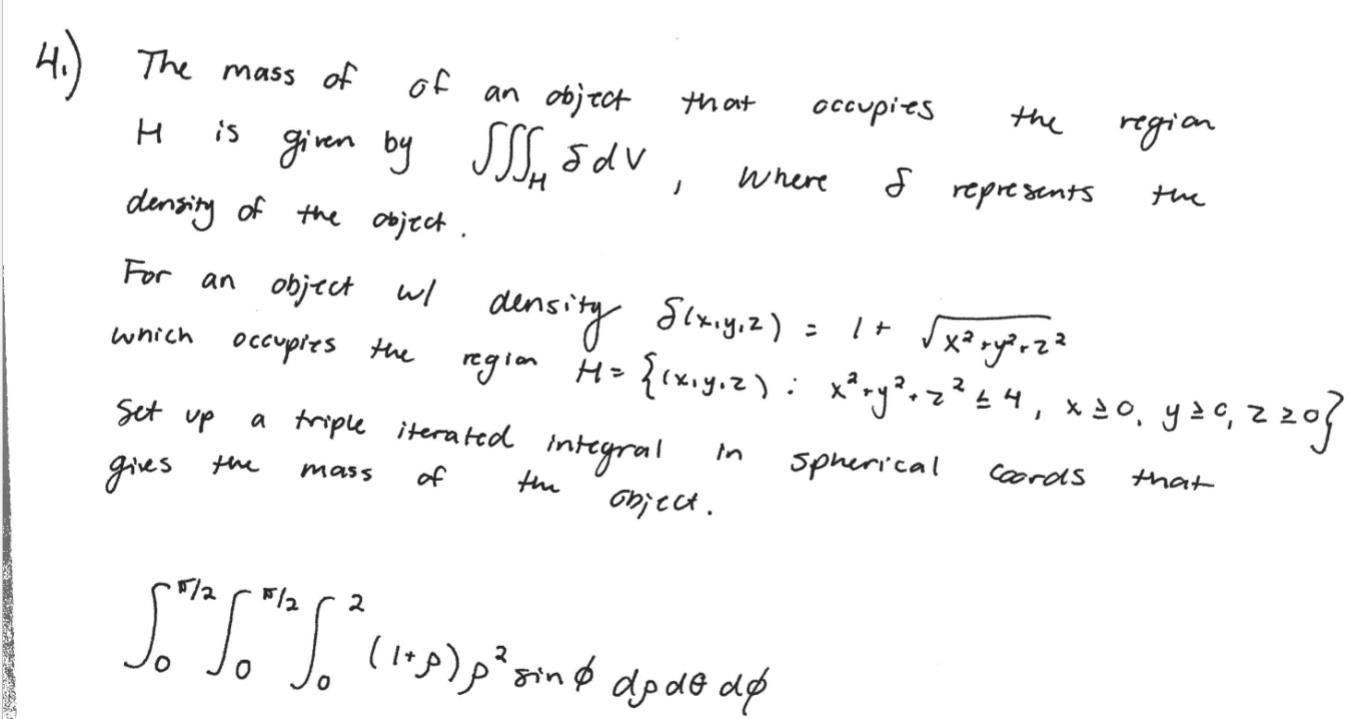 4.) The mass of of an object that occupies the region
H is given by ∭_H δ dV , where δ represents the
density of the object.
For an object w/ density δ(x,y,z) = 1 + √(x²+y²+z²)
which occupies the region H = {(x,y,z) : x²+y²+z² ≤ 4, x ≥ 0, y ≥ 0, z ≥ 0}
Set up a triple iterated integral in spherical coords that
gives the mass of the object.
∫_0^{π/2} ∫_0^{π/2} ∫_0^2 (1+ρ)ρ² sin φ dρ dθ dφ